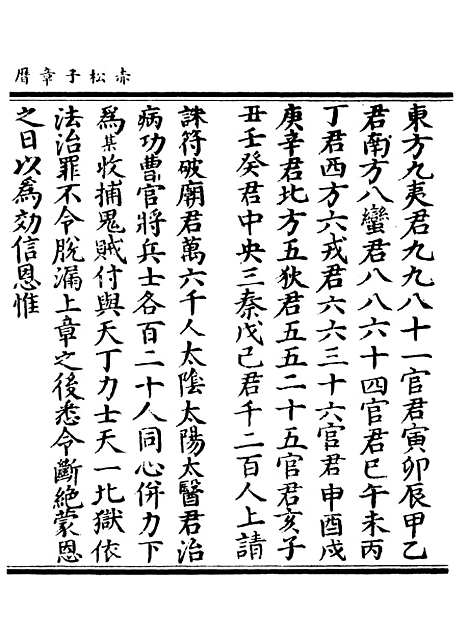 赤松子章曆
東方九夷君九九八十一官君寅卯辰甲乙
君南方八蠻君八八六十四官君巳午未丙
丁君西方六戎君六六三十六官君申酉戌
庚辛君北方五狄君五五二十五官君亥子
丑壬癸君中央三秦戊己君千二百人上請
誅符破廟君萬六千人太陰太陽太醫君治
病功曹官將兵士各百二十人同心併力下
爲其收捕鬼賊付與天丁力士天一北獄依
法治罪不令脫漏上章之後悉令斷絕蒙恩
之日以爲効信恩惟